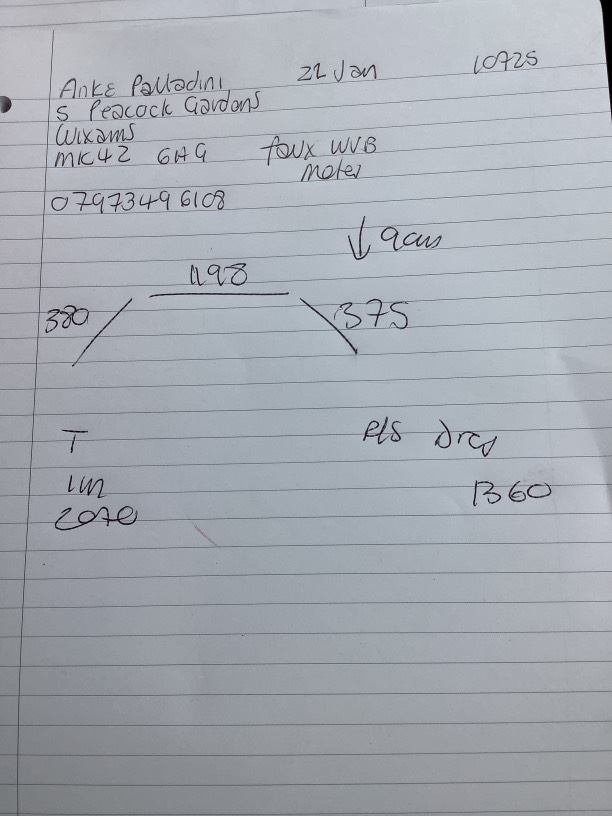 Anke Palladini 22 Jan 10725
5 Peacock Gardens
Wixams
MK42 6HG faux WVB
0797349 6108
↓ 9cm
1198
380 375
T
1m
B60